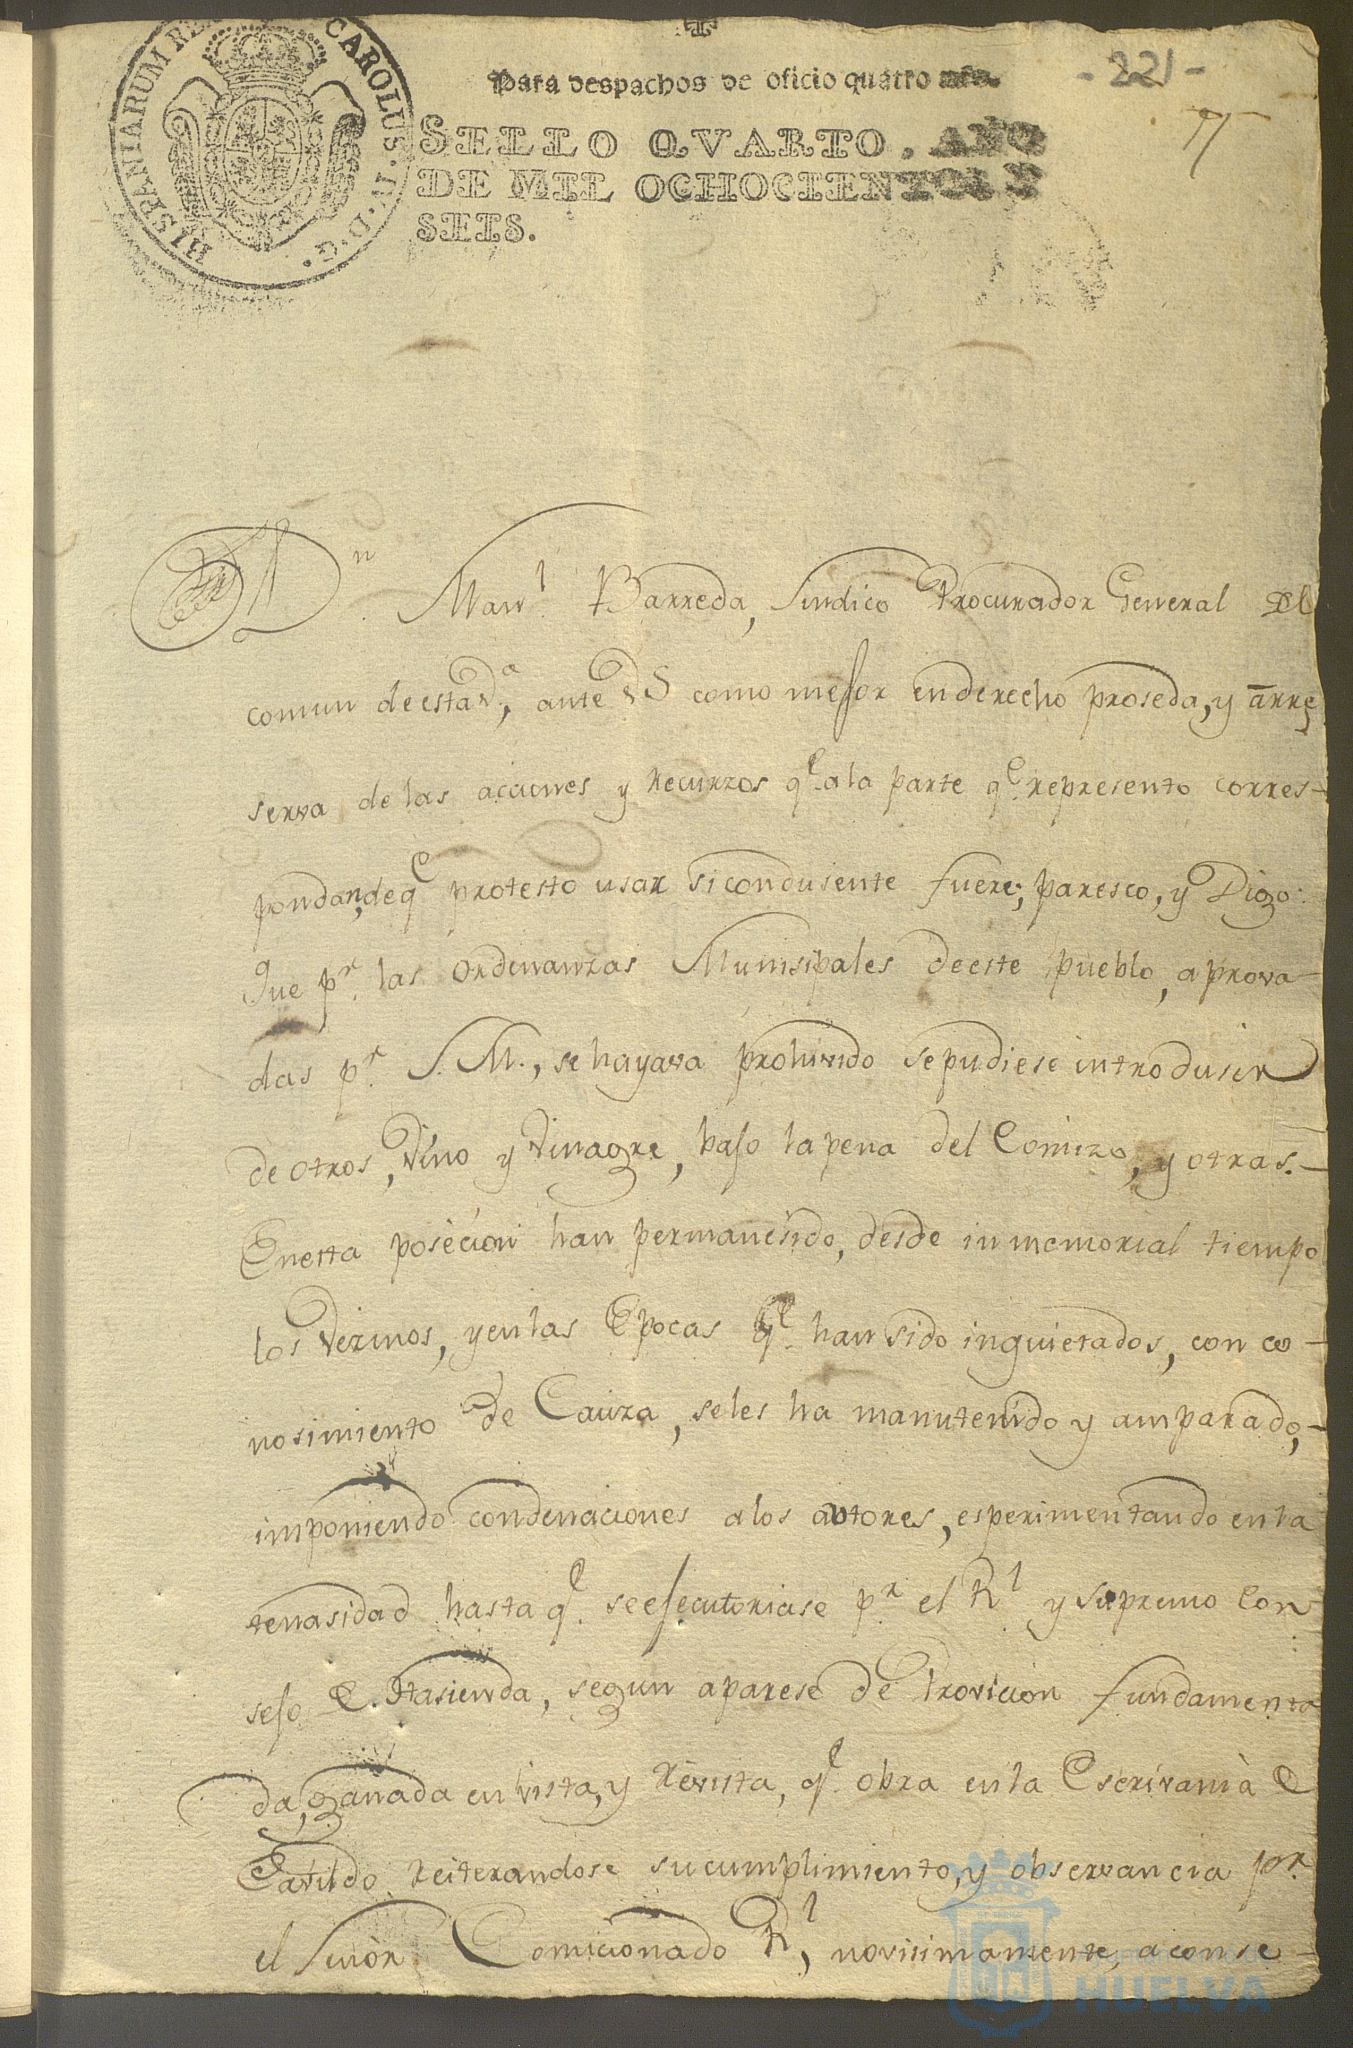 HISPANIARUM CAROLUS D. G.
Para despachos de oficio quatro mrs.
SELLO QVARTO, AÑO
DE MIL OCHOCIENTOS Y
SEIS.
- 221 -
Dn Manl. Barreda, Sindico Procurador General del
comun de esta Va, ante VS como mejor en derecho proseda, y arre
serva de las aciones y Recurzos qe. ala parte qe. represento corres-
pondan, de qe protesto usar si condusente fuere, paresco, y Digo:
Que pr. las ordenanzas Munisipales de este Pueblo, aprova-
das pr. S. M., se hayava prohivido se pudiese introdusir
de otros, Vino y Vinagre, bajo la pena del Comizo, y otras.-
En esta posecion han permanesido, desde inmemorial tiempo
los Vezinos, y en las Epocas qe. han sido inquietados, con co-
nosimiento de Cauza, seles ha manutenido y amparado,-
imponiendo condenaciones alos autores, esperimentando en la
tenasidad hasta qe. se ejecutoriase pr el Rl y Supremo Con
sejo de Hasienda, segun aparese de Provicion fundamenta
da, ganada en Vista, y Revista, qe. obra en la Escrivania de
Cavildo reiterandose su cumplimiento, y observancia pr.
el Señor Comicionado Rl, novisimamente, aconse-
HUELVA